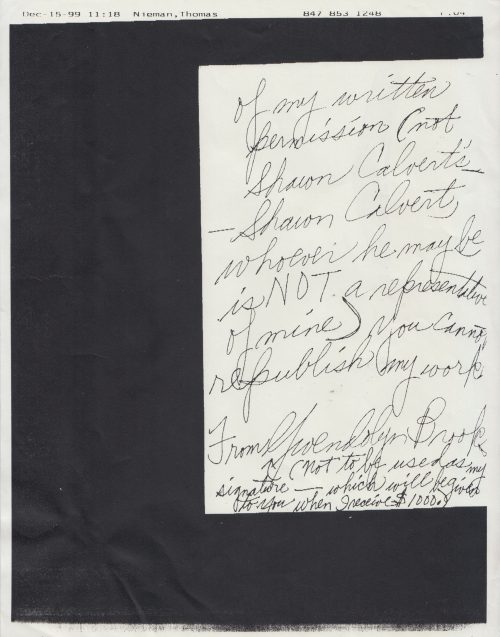 Dec-15-99 11:18 Nieman,Thomas 847 853 1248 P.04
of my written
permission (not
Shawn Calvert's —
— Shawn Calvert,
whoever he may be
is NOT a representative
of mine) you cannot
republish my work
From Gwendolyn Brooks
(Not to be used as my
signature — which will be given
to you when I receive $1000.)